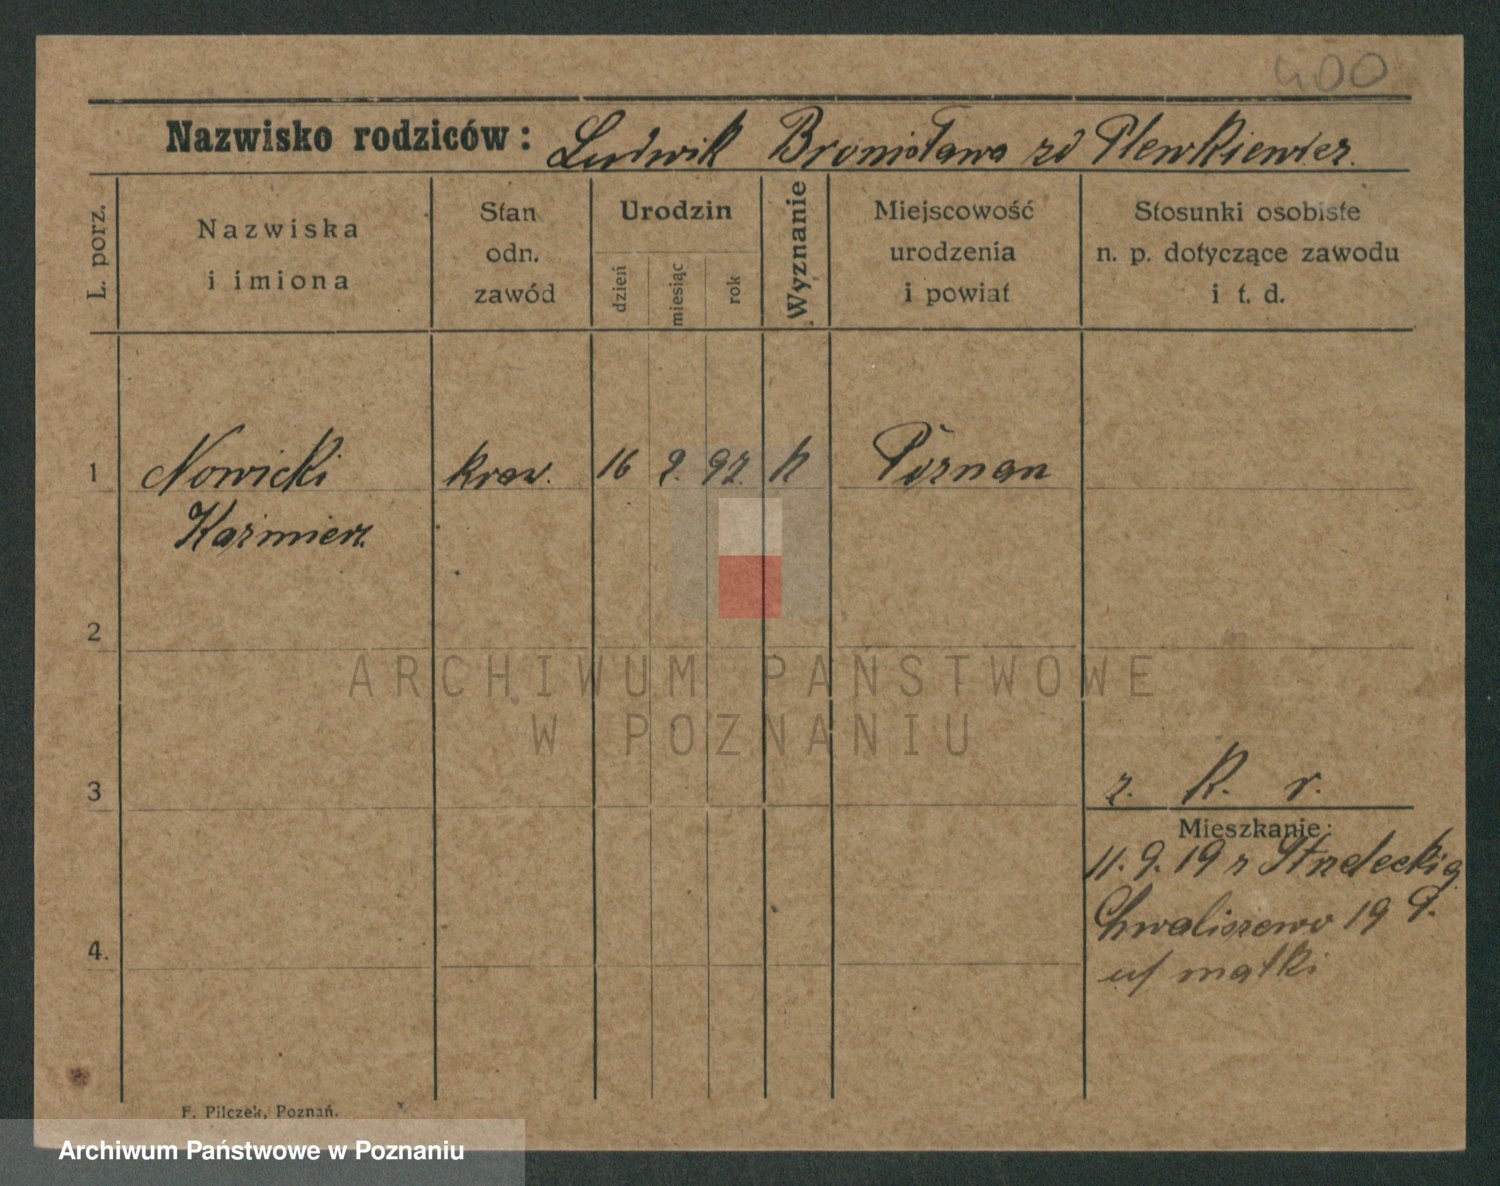 400
Nazwisko rodziców: Ludwik Bronisława zd Plewkiewicz.
L. porz.
Nazwiska
i imiona
Stan
odn.
zawód
Urodzin
dzień
miesiąc
rok
Wyznanie
Miejscowość
urodzenia
i powiat
Stosunki osobiste
n. p. dotyczące zawodu
i t. d.
1 Nowicki kraw. 16 2. 97. k Poznan
Kazmierz.
2
ARCHIWUM PAŃSTWOWE
W POZNANIU
3 z. k. r.
Mieszkanie:
11. 9. 19 z Strzelecka
Chwaliszewo 19
4. matki
F. Pilczek, Poznań.
Archiwum Państwowe w Poznaniu